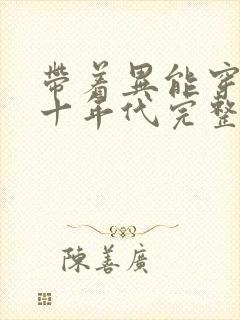 帶着異能穿
十年代完整
陳善廣